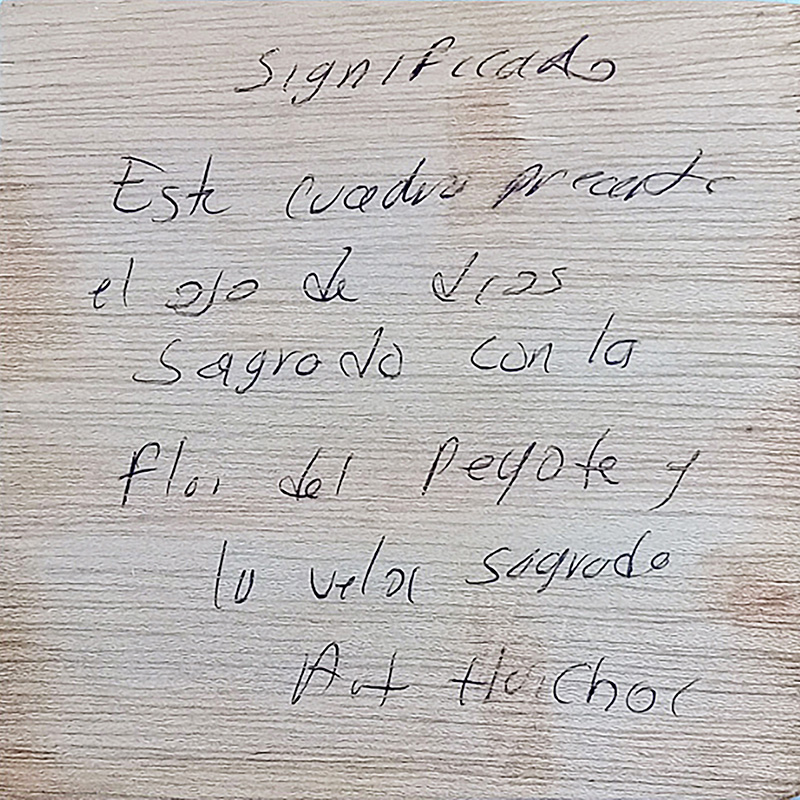 Significado
Este cuadro precente
el ojo de dios
Sagrado con la
flor del Peyote y
la vela sagrada
Art Huichol